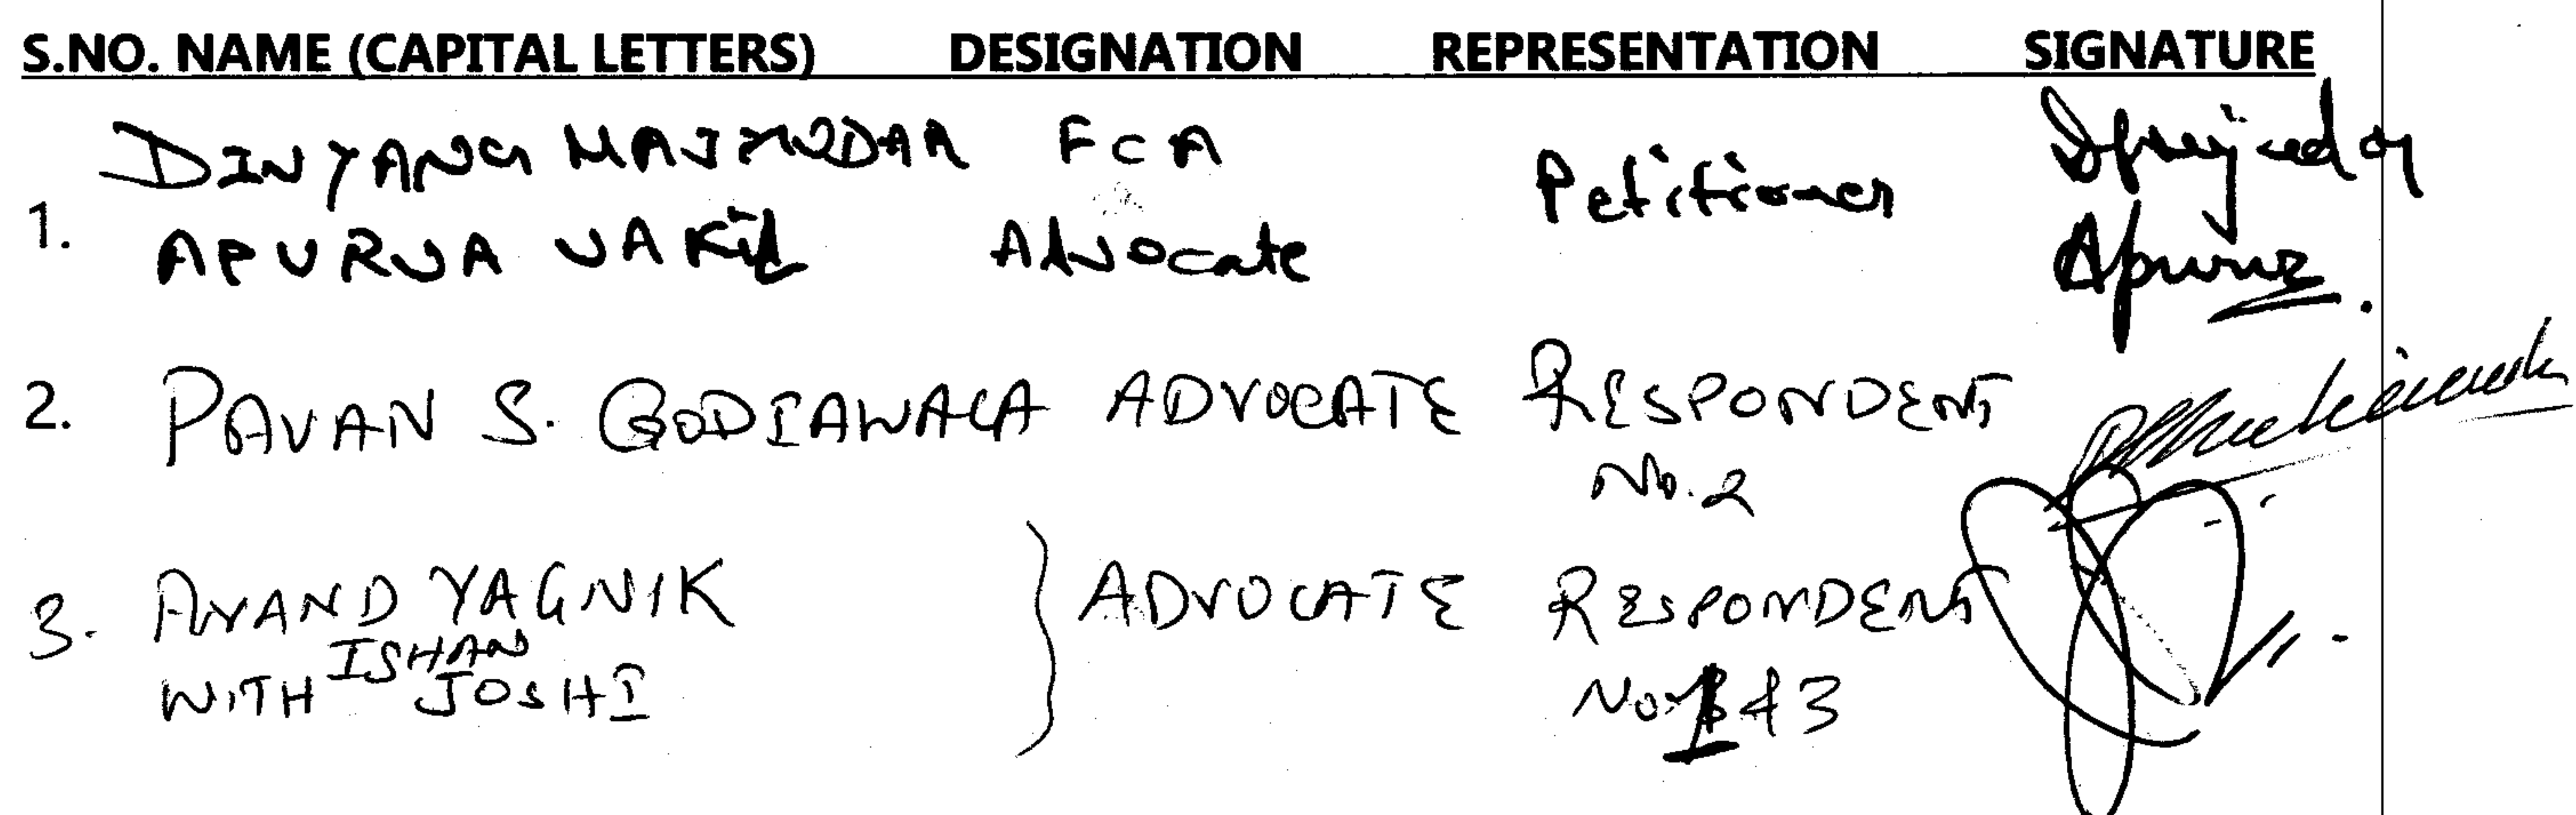 S.NO. NAME (CAPITAL LETTERS) DESIGNATION REPRESENTATION SIGNATURE
DINYANG MAJMUDAR FCA
1. APURVA VAKIL Advocate Petitioner
2. PAVAN S. GODIAWALA ADVOCATE RESPONDENT
No. 2
3. ANAND YAGNIK ADVOCATE RESPONDENT
WITH ISHAN JOSHI No. 1 & 3